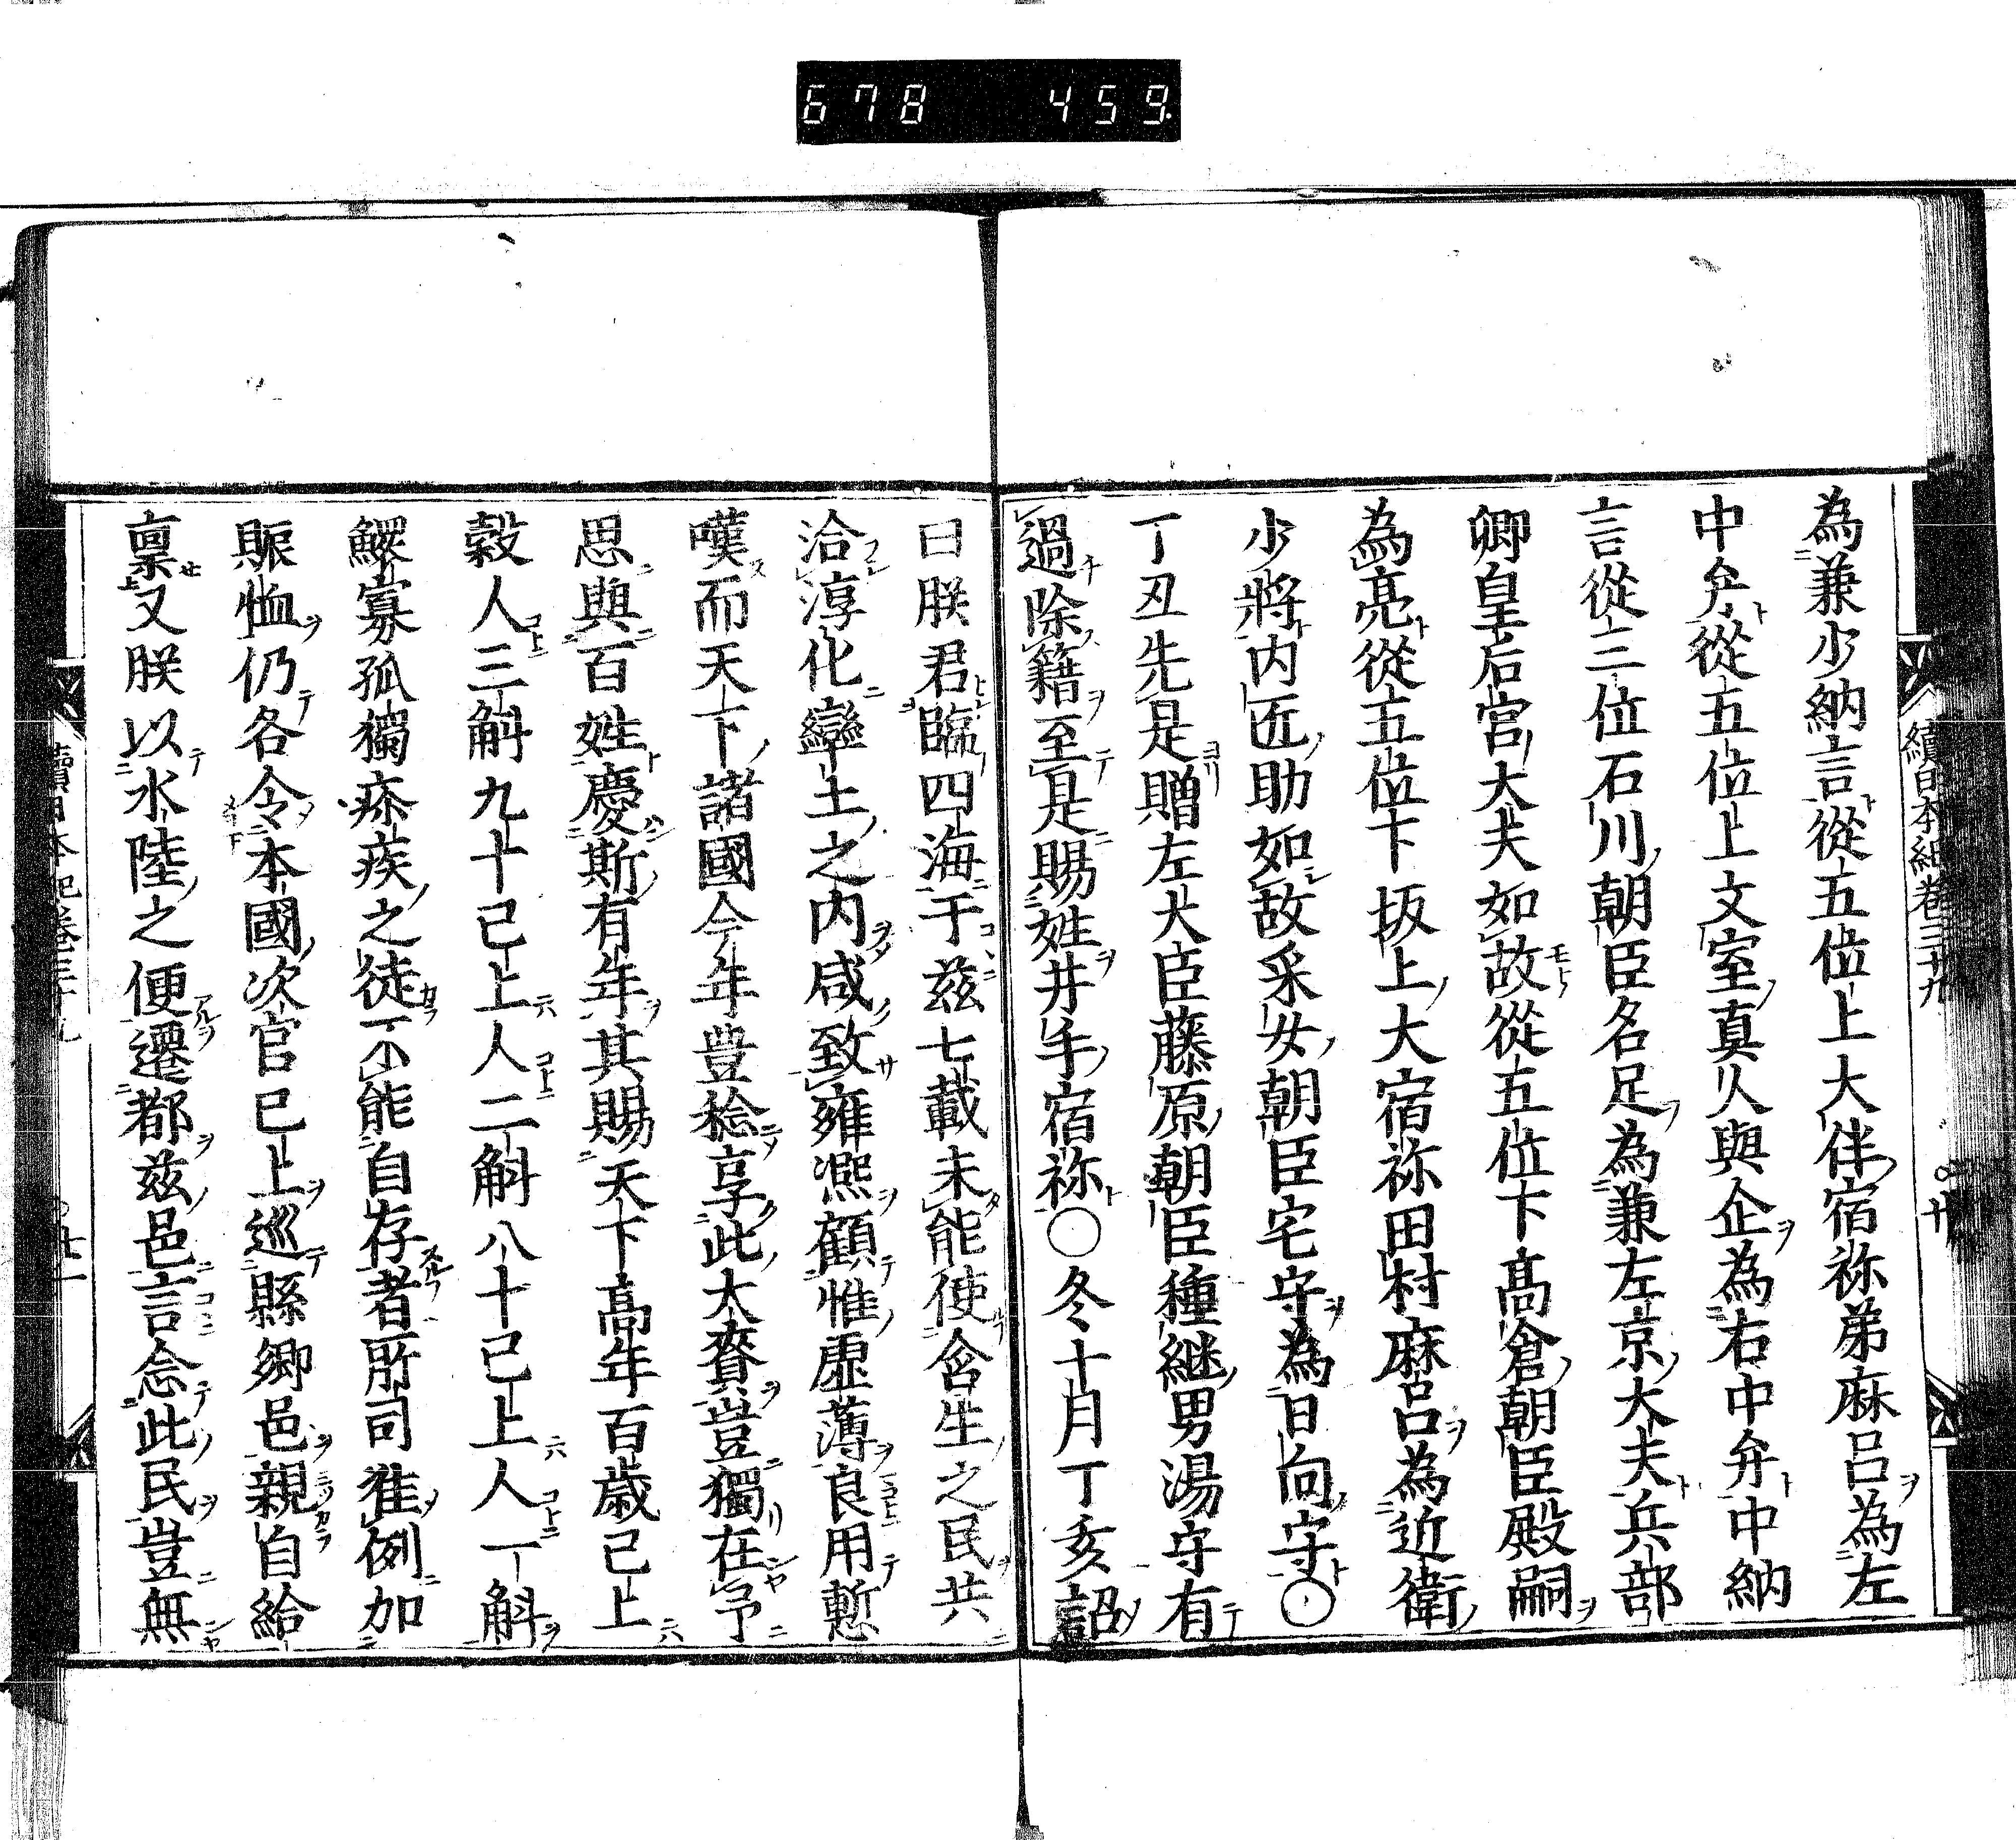 678 459
續日本紀卷三十九 廿
為兼少納言從五位上大伴宿祢弟麻呂為左
中弁從五位上文室真人與企為右中弁中納
言從三位石川朝臣名足為兼左京大夫兵部
卿皇后宮大夫如故從五位下髙倉朝臣殿嗣
為亮從五位下坂上大宿祢田村麻呂為近衛
少將内匠助如故采女朝臣宅守為日向守〇
丁丑先是贈左大臣藤原朝臣種継男湯守有
過除籍至是賜姓井手宿祢〇冬十月丁亥詔
曰朕君臨四海于兹七載未能使含生之民共
洽淳化率土之内咸致雍凞顧惟虚薄良用慙
嘆而天下諸國今年豊稔享此大賚豈獨在予
思與百姓慶斯有年其賜天下高年百歳已上
穀人三斛九十已上人二斛八十已上人一斛
鰥寡孤獨疹疾之徒不能自存者所司准例加
賑恤仍各令本國次官已上巡縣郷邑親自給
稟又朕以水陸之便遷都兹邑言念此民豈無
續日本紀卷三十九 廿一